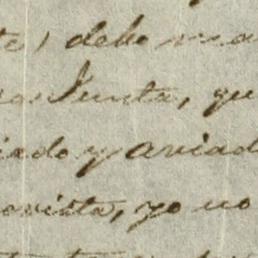 te) debo ma
Junta, qu
iado y aviad
ovista, yo no